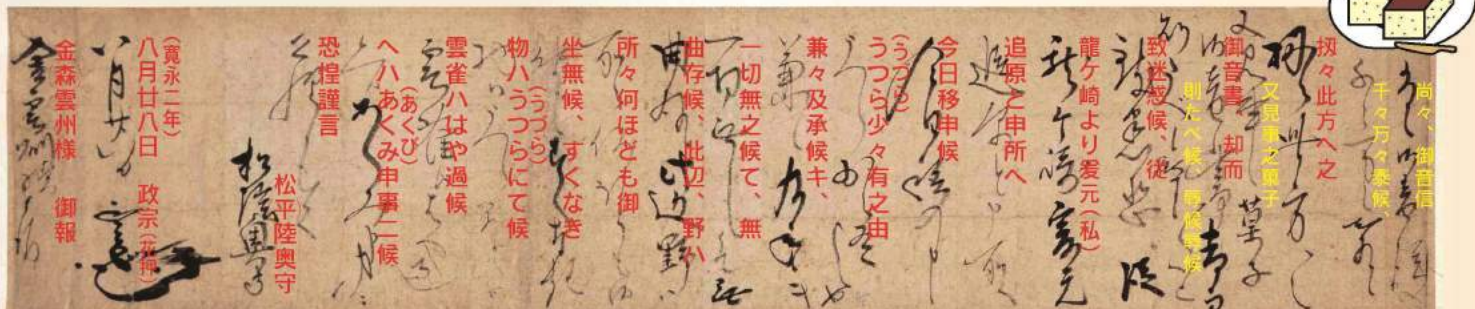 尚々、御音信
千々万々忝候、
扨々此方へ之
又見事之菓子
御音書、却而
則たべ候、辱候辱候
致迷惑候、従
龍ケ崎より爰元(私)
追原と申所へ
今日移申候
(うづら)
うつら少々有之由
兼々及承候キ、
一切無之候て、無
曲存候、此辺、野ハ
所々何ほども御
坐無候、すくなき
(うづら)
物ハうつらにて候
雲雀ハはや過候
(あくび)
へハあくみ申事ニ候
恐惶謹言
松平陸奥守
(寛永二年)
八月廿八日 政宗(花押)
金森雲州様 御報